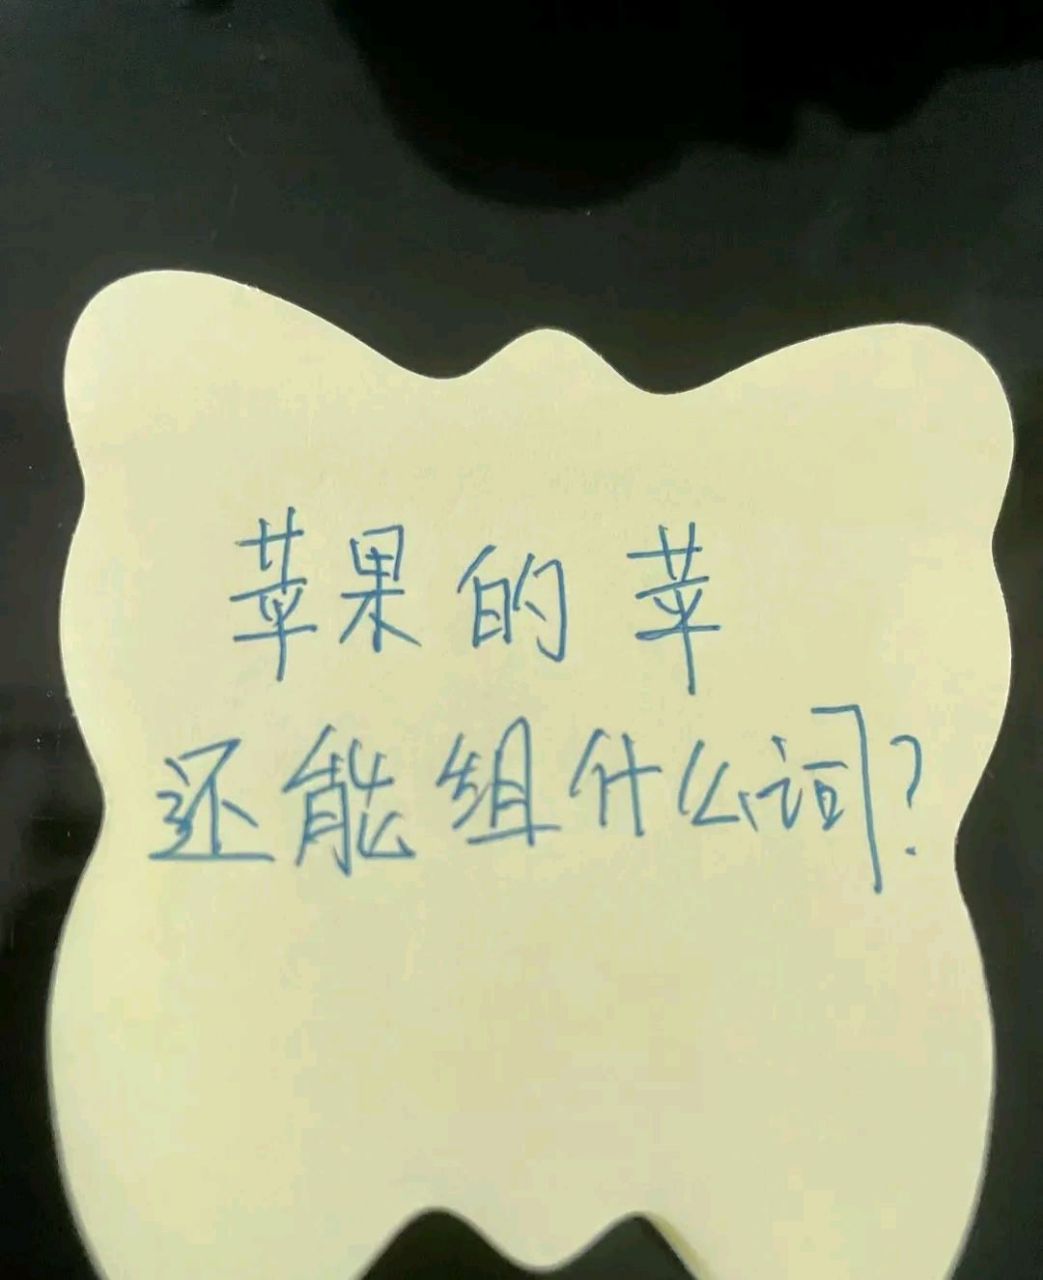 苹果的苹
还能组什么词?